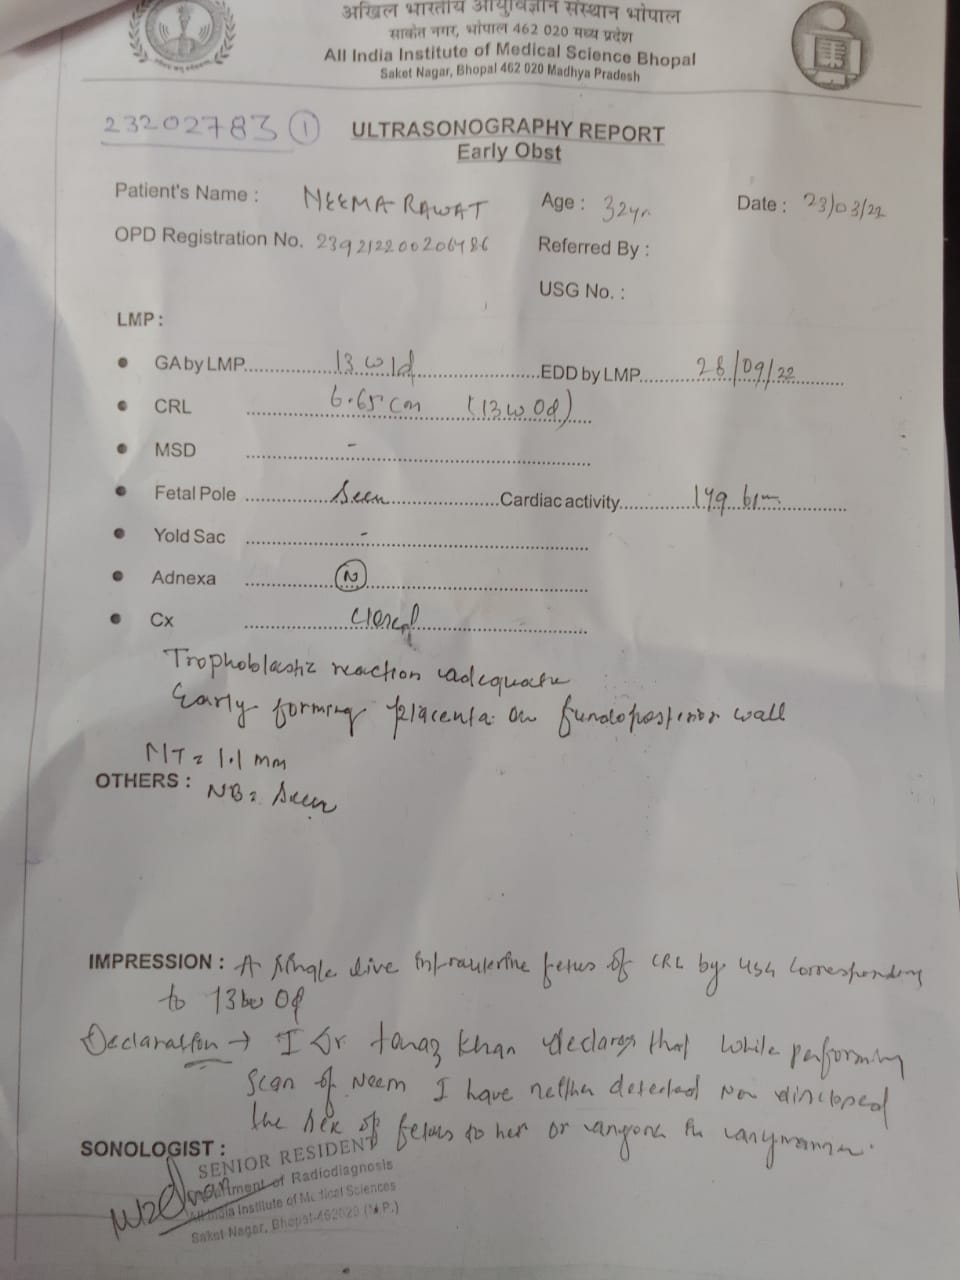 अखिल भारतीय आयुर्विज्ञान संस्थान भोपाल
साकेत नगर, भोपाल 462 020 मध्य प्रदेश
All India Institute of Medical Science Bhopal
Saket Nagar, Bhopal 462 020 Madhya Pradesh
23202783 1
ULTRASONOGRAPHY REPORT
Early Obst
Patient's Name : NEEMA RAWAT Age : 32yr Date : 23/03/22
OPD Registration No. Referred By :
USG No. :
LMP :
• GA by LMP 13w1d EDD by LMP 28/09/22
• CRL 6.65 cm (13w0d)
• MSD -
• Fetal Pole Seen Cardiac activity 149 bpm
• Yold Sac -
• Adnexa N
• Cx closed
Trophoblastic reaction adequate
Early forming placenta on fundoposterior wall
NT = 1.1 mm
OTHERS : NB = Seen
IMPRESSION : A single live intrauterine fetus of CRL by USG corresponding
to 13w 0d
Declaration → I Dr Khan declares that while performing
scan of Neem I have neither detected nor disclosed
the sex of fetus to her or anyone in any manner.
SONOLOGIST :
SENIOR RESIDENT
Department of Radiodiagnosis
All India Institute of Medical Sciences
Saket Nagar, Bhopal-462020 (M.P.)